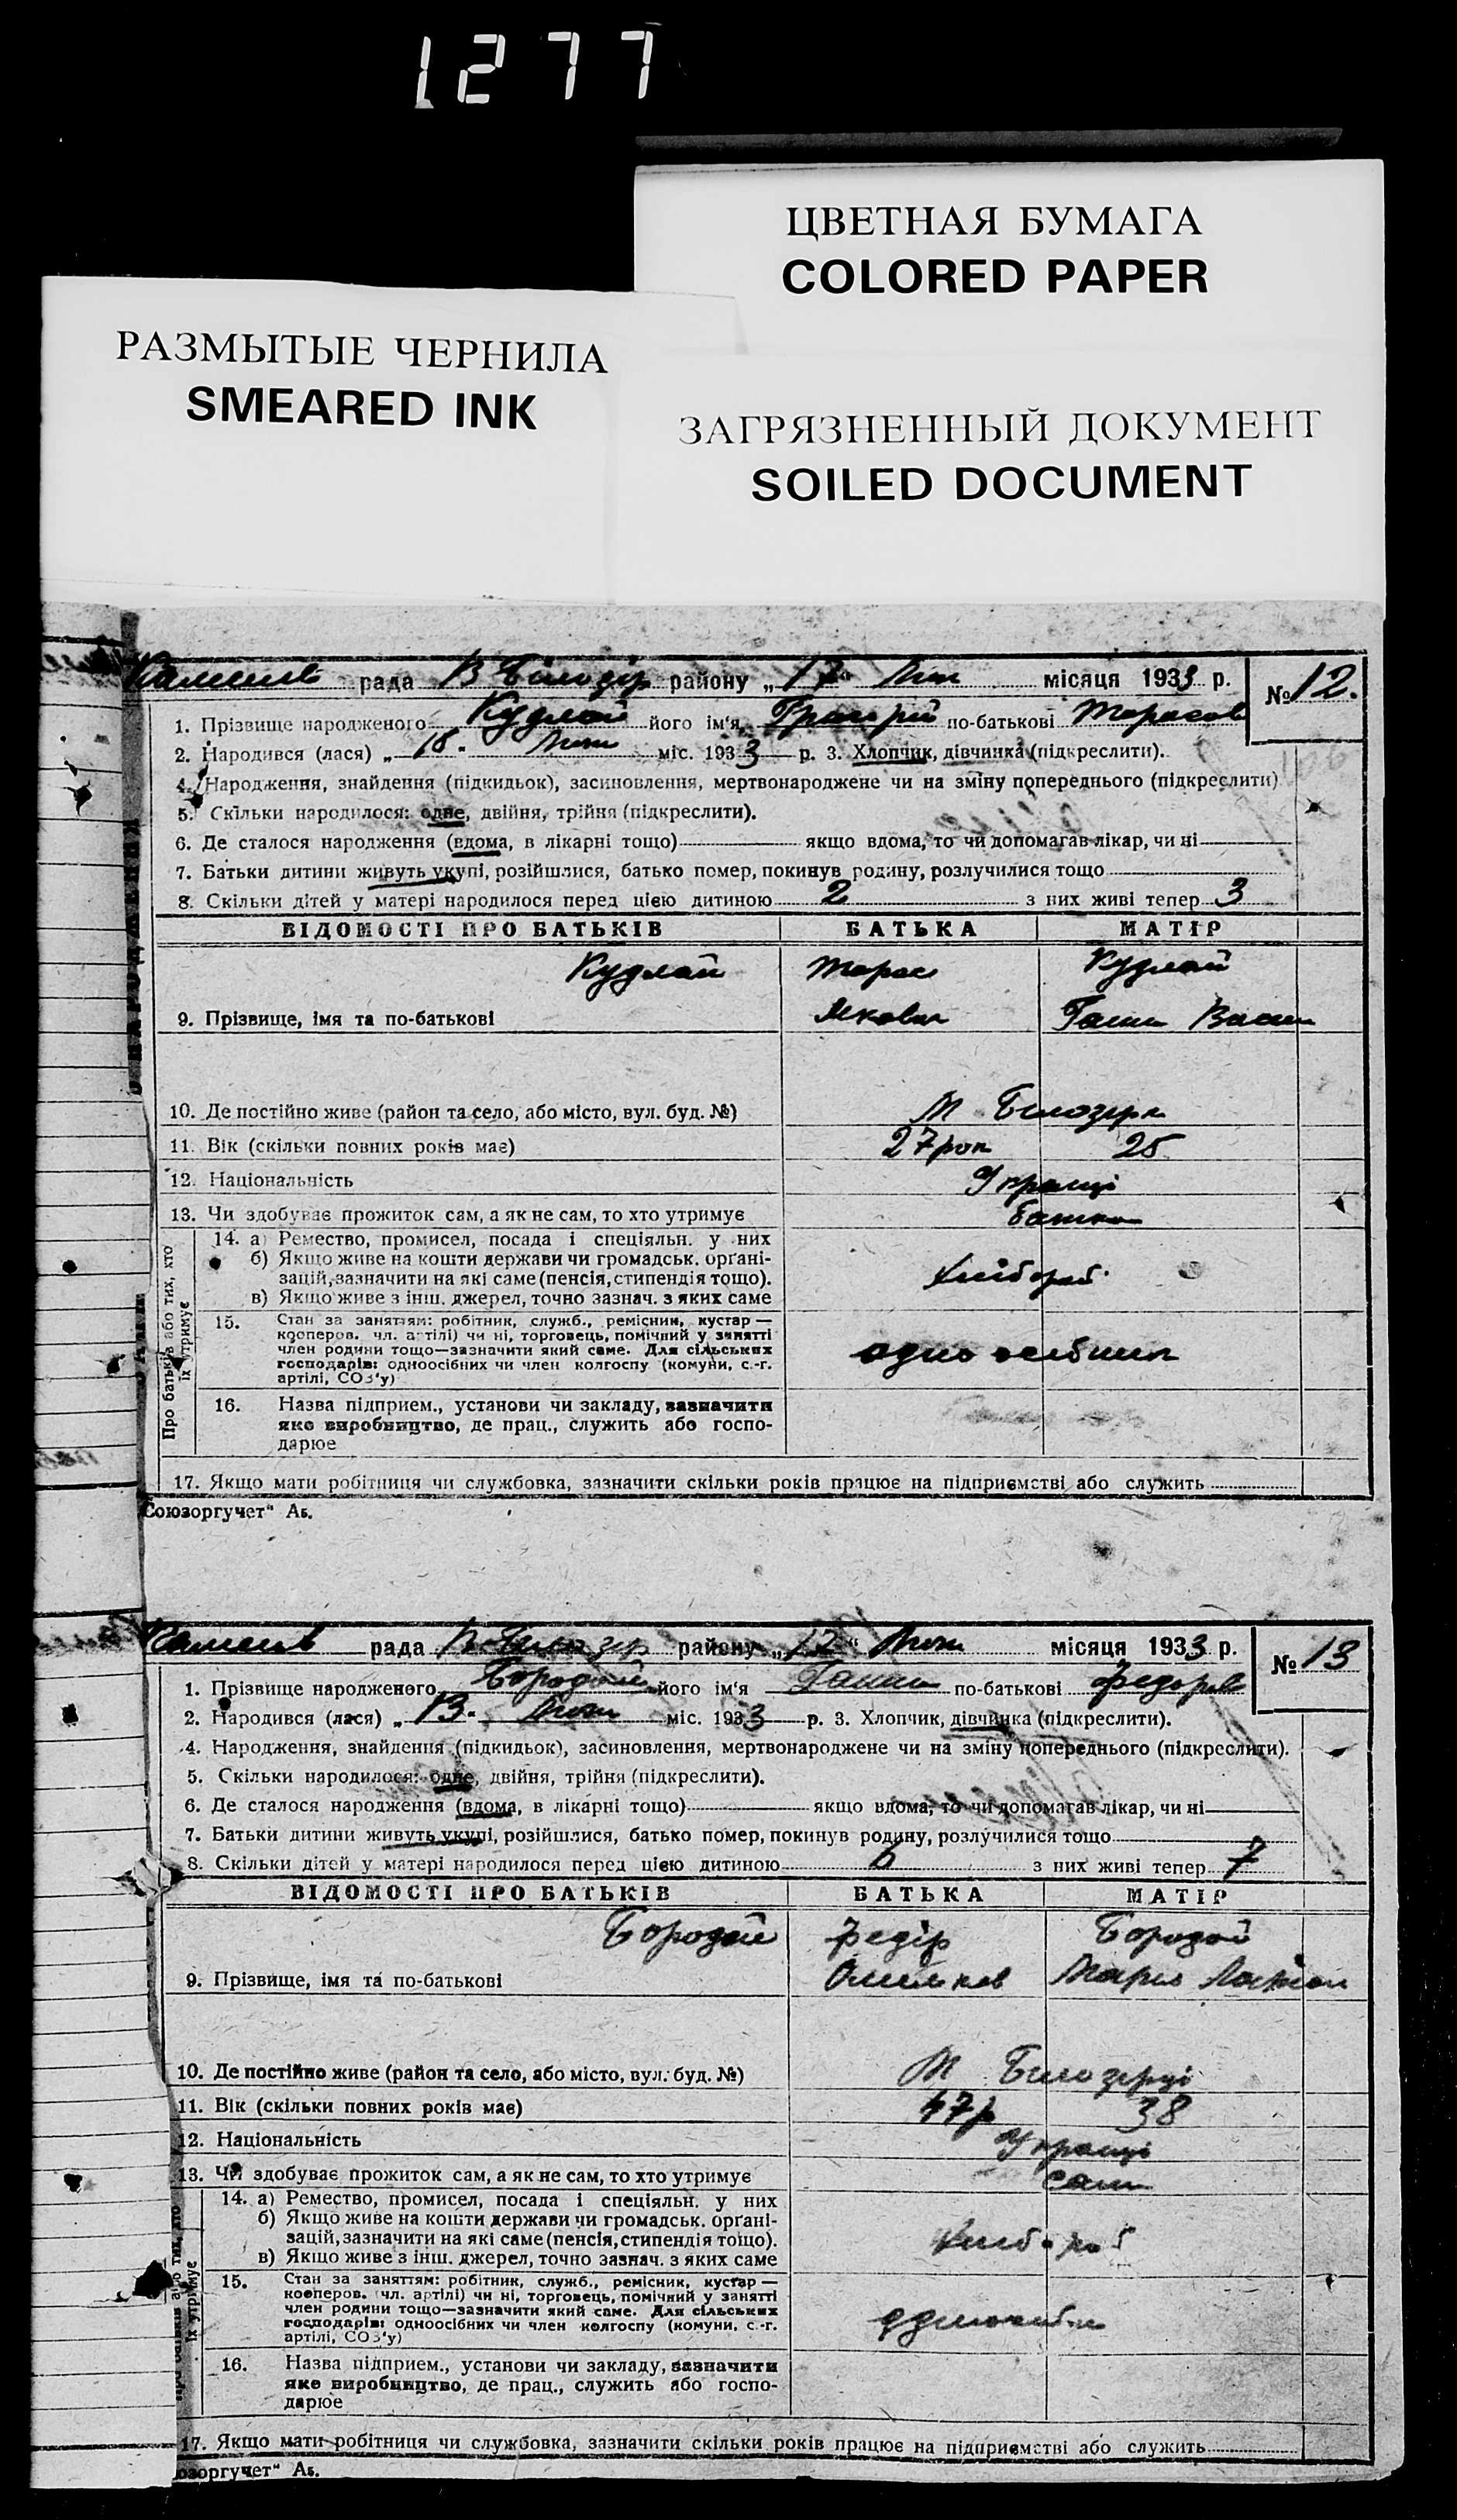 1277
ЦВЕТНАЯ БУМАГА
COLORED PAPER
РАЗМЫТЫЕ ЧЕРНИЛА
SMEARED INK
ЗАГРЯЗНЕННЫЙ ДОКУМЕНТ
SOILED DOCUMENT
рада В Білозір району „ 17 “ місяця 1933 р. № 12.
1. Прізвище народженого Кудлай його ім'я Григорій по-батькові Тарасов
2. Народився (лася) „ міс. 1933 р. 3. Хлопчик, дівчинка (підкреслити).
4. Народження, знайдення (підкидьок), засиновлення, мертвонароджене чи на зміну попереднього (підкреслити)
5. Скільки народилося: одне, двійня, трійня (підкреслити).
6. Де сталося народження (вдома, в лікарні тощо) якщо вдома, то чи допомагав лікар, чи ні
7. Батьки дитини живуть укупі, розійшлися, батько помер, покинув родину, розлучилися тощо
8. Скільки дітей у матері народилося перед цією дитиною 2 з них живі тепер 3
ВІДОМОСТІ ПРО БАТЬКІВ БАТЬКА МАТІР
Кудлай Тарас Кудлай
9. Прізвище, імя та по-батькові
10. Де постійно живе (район та село, або місто, вул. буд. №) М Білозірк
11. Вік (скільки повних років має) 27 рок 25
12. Національність Українці
13. Чи здобуває прожиток сам, а як не сам, то хто утримує
Про батьків або тих, хто їх утримує
14. а) Ремество, промисел, посада і спеціяльн. у них
б) Якщо живе на кошти держави чи громадськ. орґані-
зацій, зазначити на які саме (пенсія, стипендія тощо). хлібороб
в) Якщо живе з інш. джерел, точно зазнач. з яких саме
15. Стан за заняттям: робітник, служб., ремісник, кустар —
кооперов. чл. артілі) чи ні, торговець, помічний у занятті
член родини тощо—зазначити який саме. Для сільських
господарів: одноосібних чи член колгоспу (комуни, с.-г.
артілі, СОЗ'у)
16. Назва підприєм., установи чи закладу, зазначити
яке виробництво, де прац., служить або госпо-
дарює
17. Якщо мати робітниця чи службовка, зазначити скільки років працює на підприємстві або служить
Союзоргучет“ Аг.
рада району „ “ місяця 1933 р. № 13
1. Прізвище народженого Бородай його ім'я Ганна по-батькові Федорів
2. Народився (лася) „ 13. міс. 1933 р. 3. Хлопчик, дівчинка (підкреслити).
4. Народження, знайдення (підкидьок), засиновлення, мертвонароджене чи на зміну попереднього (підкреслити).
5. Скільки народилося: одне, двійня, трійня (підкреслити).
6. Де сталося народження (вдома, в лікарні тощо) якщо вдома, то чи допомагав лікар, чи ні
7. Батьки дитини живуть укупі, розійшлися, батько помер, покинув родину, розлучилися тощо
8. Скільки дітей у матері народилося перед цією дитиною 6 з них живі тепер 7
ВІДОМОСТІ ПРО БАТЬКІВ БАТЬКА МАТІР
Бородай Федір Бородай
9. Прізвище, імя та по-батькові
10. Де постійно живе (район та село, або місто, вул. буд. №) М Білозерці
11. Вік (скільки повних років має) 47р 38
12. Національність Українці
13. Чи здобуває прожиток сам, а як не сам, то хто утримує
14. а) Ремество, промисел, посада і спеціяльн. у них
б) Якщо живе на кошти держави чи громадськ. орґані-
зацій, зазначити на які саме (пенсія, стипендія тощо). хлібороб
в) Якщо живе з інш. джерел, точно зазнач. з яких саме
15. Стан за заняттям: робітник, служб., ремісник, кустар —
кооперов. чл. артілі) чи ні, торговець, помічний у занятті
член родини тощо—зазначити який саме. Для сільських
господарів: одноосібних чи член колгоспу (комуни, с.-г.
артілі, СОЗ'у)
16. Назва підприєм., установи чи закладу, зазначити
яке виробництво, де прац., служить або госпо-
дарює
17. Якщо мати робітниця чи службовка, зазначити скільки років працює на підприємстві або служить
оюзоргучет“ Аг.